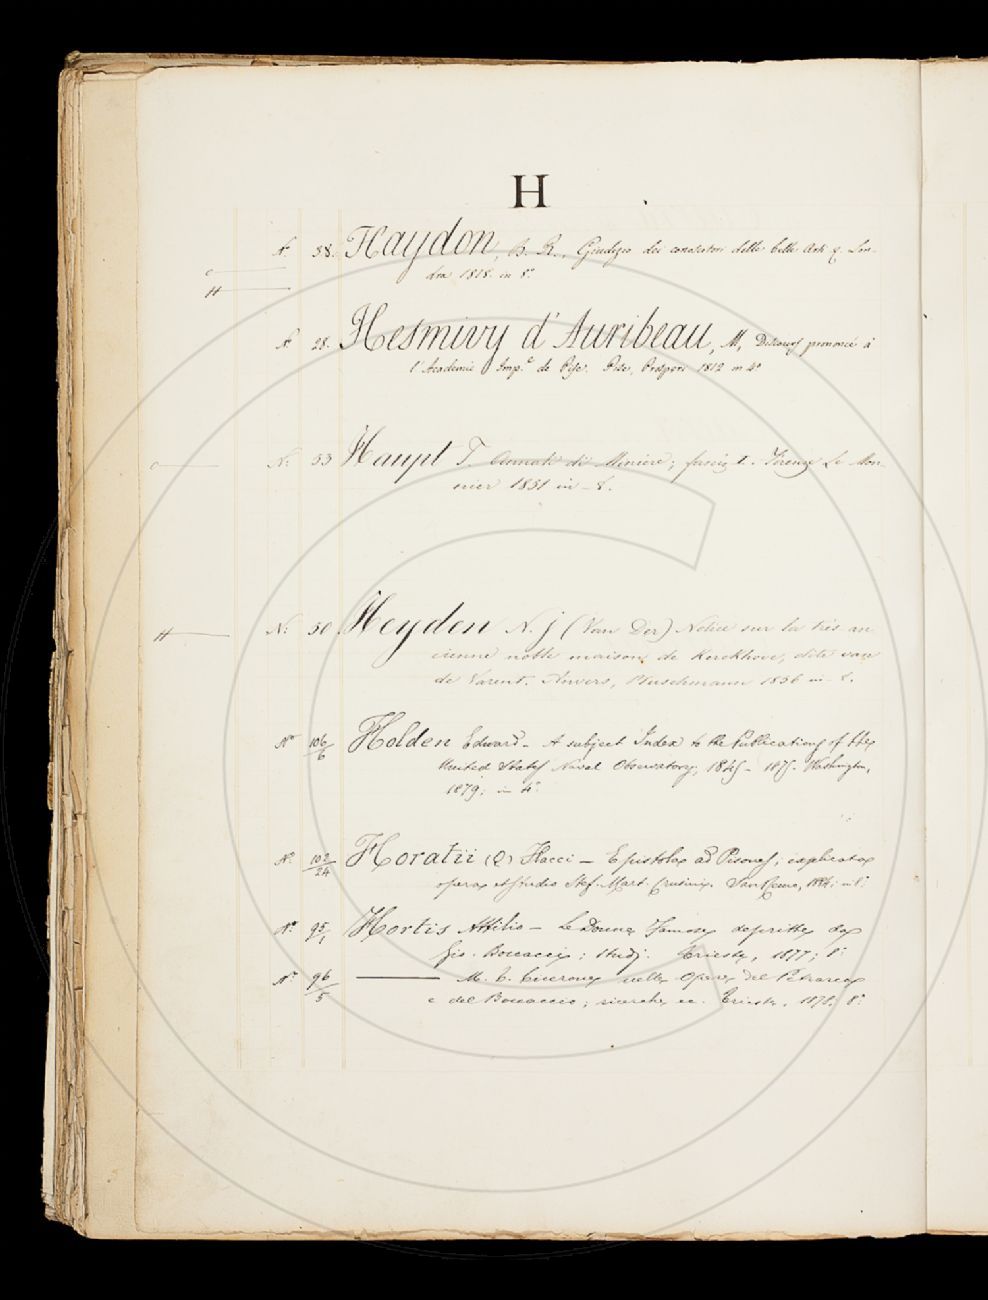 H
N. 38. Haydon, B. R., Giudizio dei conoscitori delle belle Arti &. Lon-
dra 1818. in 8.°
H
N. 28. Hesmivy d'Auribeau, M, Discours prononcé à
l'Academie Imp.e de Pise. Pise, Prosperi 1812 in 4°
N: 53 Haupt T. Annali di Miniere; fascio I. Firenze Le Mon-
nier 1851 in - 8.
H
N: 50 Heyden N. J (Van Der) Notice sur la très an-
cienne noble maison de Kerckhove, dite van
de Varent. Anvers, Buschmann 1856 in - 8.
N° 106/6 Holden Edward - A subject Index to the Publications of the
United States Naval Observatory, 1845 - 1875. Washington,
1879; in 4°
N° 102/24 Horatii (Q) Flacci - Epistola ad Pisones, explicata
opera et studio Stef. Mart. San Remo, in 8°
N° 95/1 Hortis Attilio - Le Donne famose descritte da
Gio. Boccacci; studj. Trieste, 1877; 8°
N° 96/5 ——— M. T. Cicerone nelle Opere del Petrarca
e del Boccaccio; ricerche ec. Trieste, 1878; 8°